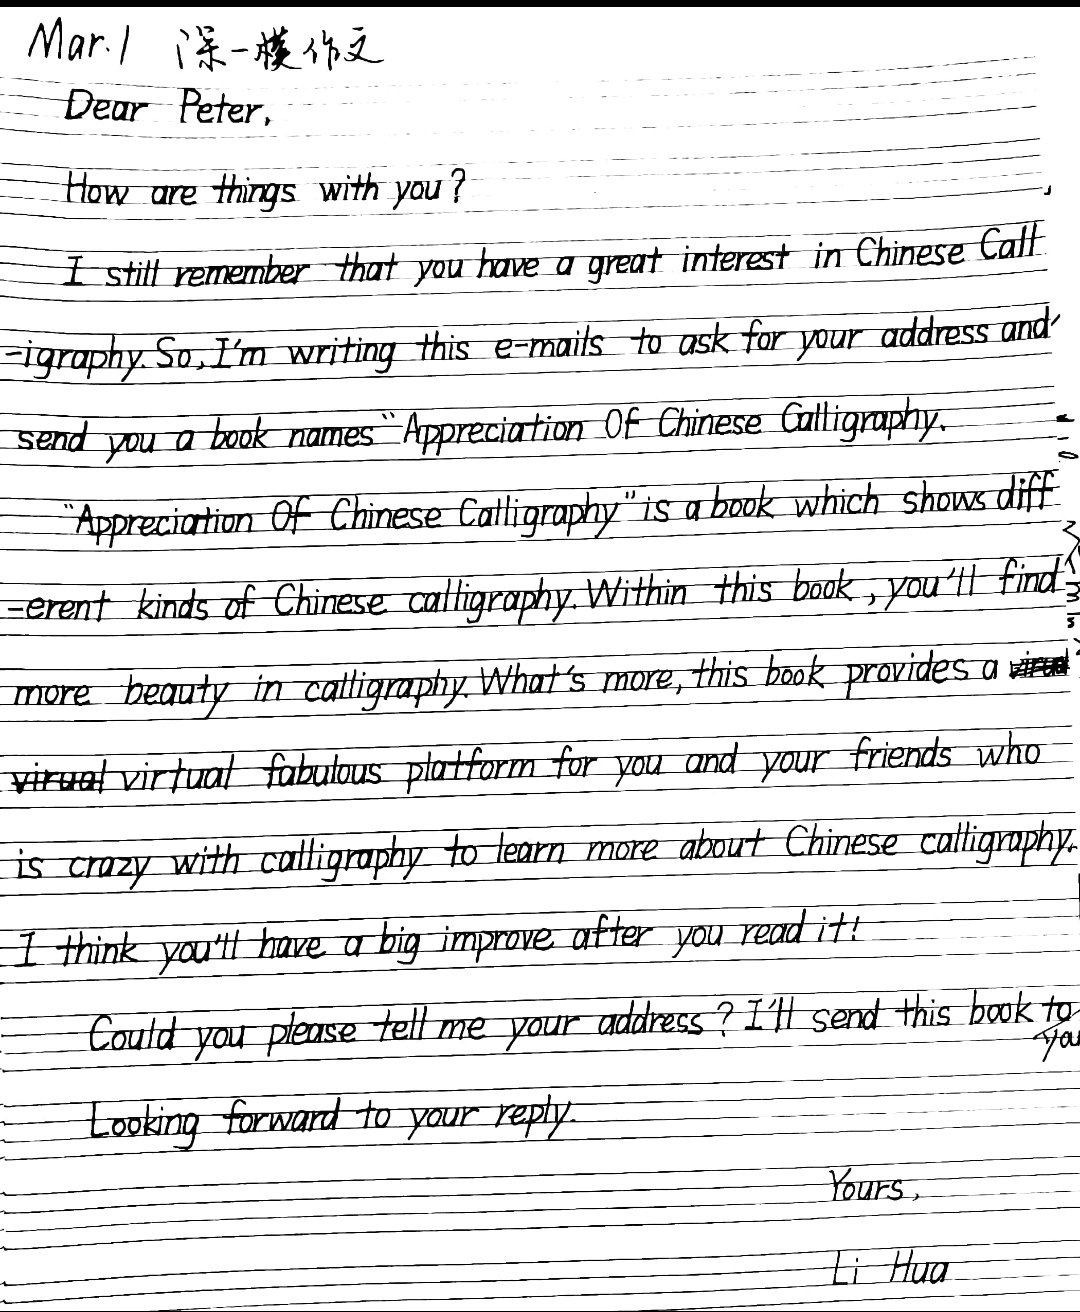 Mar.1 深一模作文
Dear Peter,
How are things with you?
I still remember that you have a great interest in Chinese Call
-igraphy. So, I'm writing this e-mails to ask for your address and
send you a book names "Appreciation Of Chinese Calligraphy.
"Appreciation Of Chinese Calligraphy" is a book which shows diff
-erent kinds of Chinese calligraphy. Within this book, you'll find
more beauty in calligraphy. What's more, this book provides a
virtual fabulous platform for you and your friends who
is crazy with calligraphy to learn more about Chinese calligraphy.
I think you'll have a big improve after you read it!
Could you please tell me your address? I'll send this book to
you
Looking forward to your reply.
Yours,
Li Hua